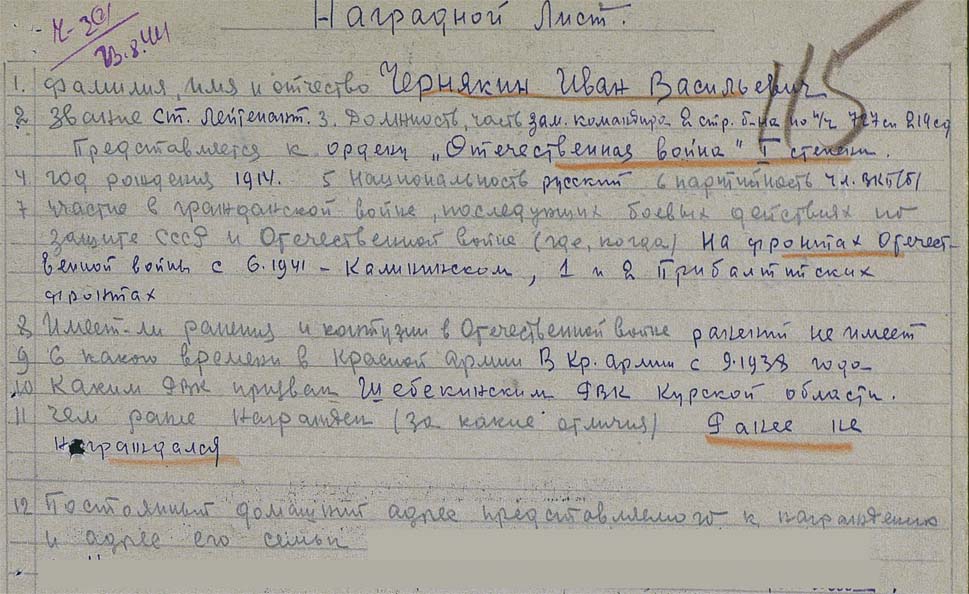 Наградной Лист.
23.8.44
115
1. Фамилия, имя и отчество Чернякин Иван Васильевич
2 Звание ст. лейтенант. 3. Должность, часть зам. командира 2 стр. б-на по п/ч 727 сп 219 сд
Представляется к ордену „Отечественная война" I степени.
4. год рождения 1914. 5 Национальность русский 6 партийность чл. ВКП(б)
7 участие в гражданской войне, последующих боевых действиях по
защите СССР и Отечественной войне (где, когда) На фронтах Отечест-
венной войны с 6.1941 - Калининском, 1 и 2 Прибалтийских
фронтах
8 Имеет-ли ранения и контузии в Отечественной войне ранений не имеет
9 С какого времени в Красной армии В Кр. армии с 9.1938 года
10 Каким РВК призван Шебекинским РВК Курской области.
11 чем ранее награжден (за какие отличия) Ранее не
награждался
12 Постоянный домашний адрес представляемого к награждению
и адрес его семьи